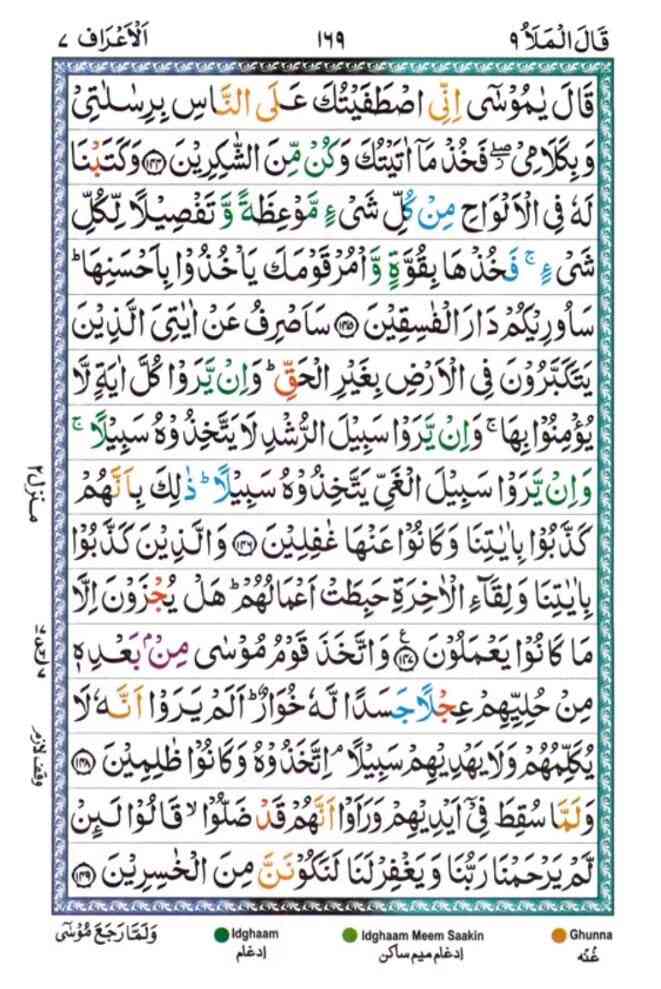 قَالَ الْمَلَاُ ۹
۱۶۹
اَلْاَعْرَاف ۷
قَالَ يٰمُوْسٰۤى اِنِّى اصْطَفَيْتُكَ عَلَى النَّاسِ بِرِسٰلٰتِىْ
وَبِكَلَامِىْ ۖ فَخُذْ مَاۤ اٰتَيْتُكَ وَكُنْ مِّنَ الشّٰكِرِيْنَ ﴿۱۴۴﴾ وَكَتَبْنَا
لَهٗ فِى الْاَلْوَاحِ مِنْ كُلِّ شَىْءٍ مَّوْعِظَةً وَّ تَفْصِيْلًا لِّكُلِّ
شَىْءٍ ۚ فَخُذْهَا بِقُوَّةٍ وَّاْمُرْ قَوْمَكَ يَاْخُذُوْا بِاَحْسَنِهَا ؕ
سَاُورِيْكُمْ دَارَ الْفٰسِقِيْنَ ﴿۱۴۵﴾ سَاَصْرِفُ عَنْ اٰيٰتِىَ الَّذِيْنَ
يَتَكَبَّرُوْنَ فِى الْاَرْضِ بِغَيْرِ الْحَقِّ ؕ وَاِنْ يَّرَوْا كُلَّ اٰيَةٍ لَّا
يُؤْمِنُوْا بِهَا ۚ وَاِنْ يَّرَوْا سَبِيْلَ الرُّشْدِ لَا يَتَّخِذُوْهُ سَبِيْلًا ۚ
وَاِنْ يَّرَوْا سَبِيْلَ الْغَىِّ يَتَّخِذُوْهُ سَبِيْلًا ؕ ذٰلِكَ بِاَنَّهُمْ
كَذَّبُوْا بِاٰيٰتِنَا وَكَانُوْا عَنْهَا غٰفِلِيْنَ ﴿۱۴۶﴾ وَالَّذِيْنَ كَذَّبُوْا
بِاٰيٰتِنَا وَلِقَآءِ الْاٰخِرَةِ حَبِطَتْ اَعْمَالُهُمْ ؕ هَلْ يُجْزَوْنَ اِلَّا
مَا كَانُوْا يَعْمَلُوْنَ ﴿۱۴۷﴾ ع وَاتَّخَذَ قَوْمُ مُوْسٰى مِنْۢ بَعْدِهٖ
مِنْ حُلِيِّهِمْ عِجْلًا جَسَدًا لَّهٗ خُوَارٌ ؕ اَلَمْ يَرَوْا اَنَّهٗ لَا
يُكَلِّمُهُمْ وَلَا يَهْدِيْهِمْ سَبِيْلًا ۘ اِتَّخَذُوْهُ وَكَانُوْا ظٰلِمِيْنَ ﴿۱۴۸﴾
وَلَمَّا سُقِطَ فِىْۤ اَيْدِيْهِمْ وَرَاَوْا اَنَّهُمْ قَدْ ضَلُّوْا ۙ قَالُوْا لَئِنْ
لَّمْ يَرْحَمْنَا رَبُّنَا وَيَغْفِرْ لَنَا لَنَكُوْنَنَّ مِنَ الْخٰسِرِيْنَ ﴿۱۴۹﴾
منزل ۲
وقف لازم
وَلَمَّا رَجَعَ مُوْسٰۤى
Idghaam
ادغام
Idghaam Meem Saakin
ادغام میم ساکن
Ghunna
غُنّه